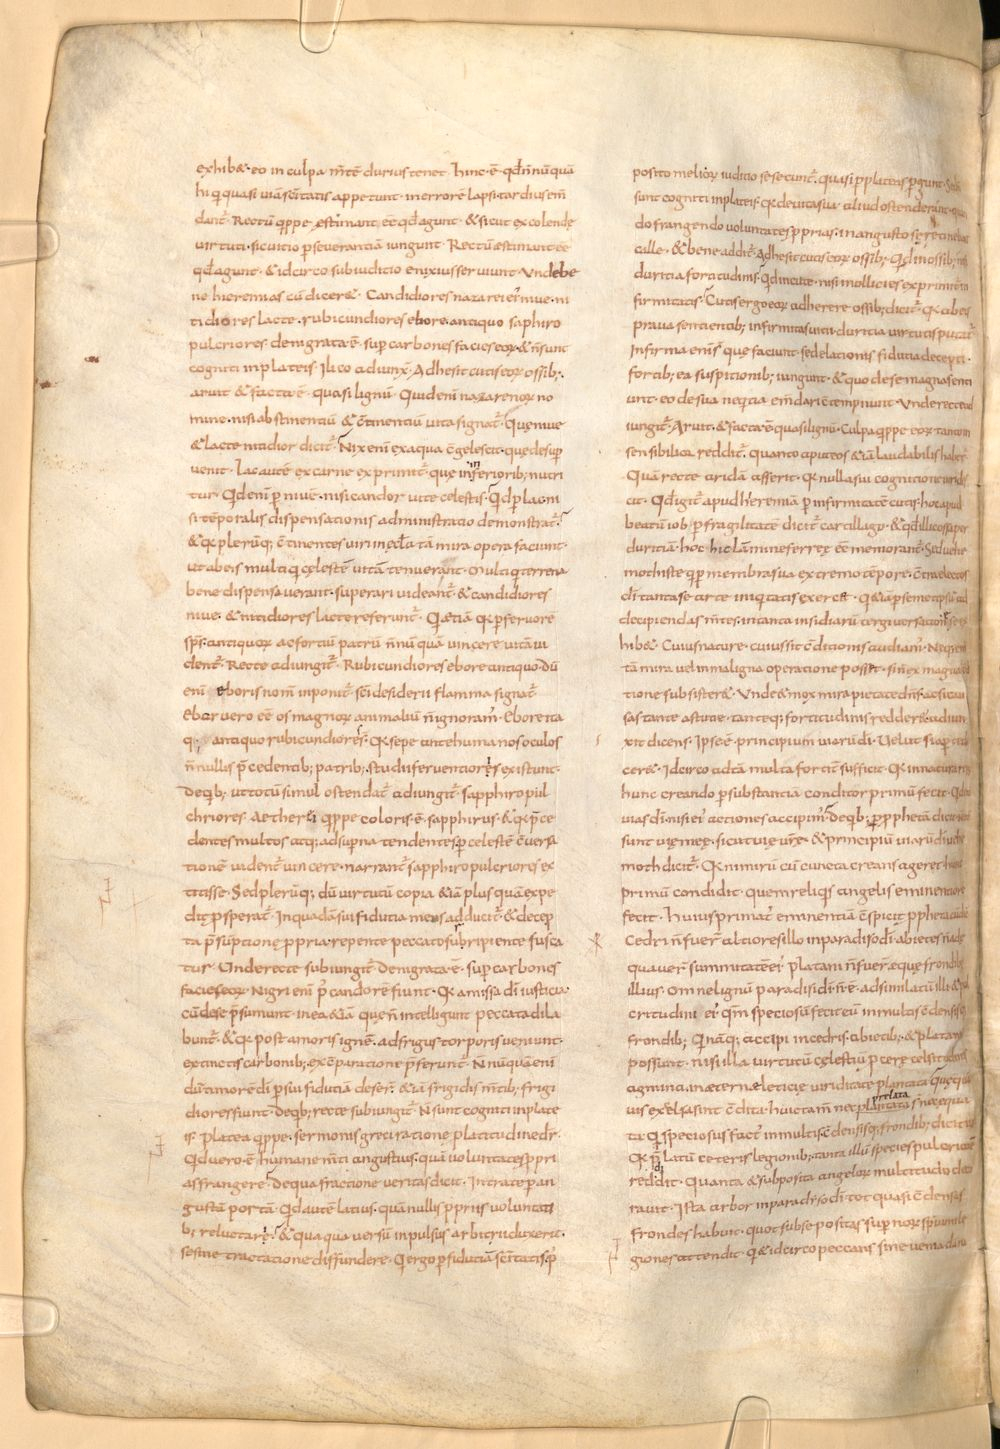 exhib&. eo in culpa m̅te̅ durius tenet. hinc. e̅. qđ n̅nu̅qua̅
hi q̇ quasi uia̅ sc̅itatis appetunt. in errore̅ lapsi. tardius em̅
dant. Rectu̅ q̇ppe est̾imant e̅e̅ qđ agunt. & sicut excolende
uirtuti. sic uitio p̲seuerantia̅ iungunt. Rectu̅ ęstimant e̅e̅
qđ agunt. & idcirco sub iuditio enixius seruiunt. Unde be
ne hieremias cu̅ diceret&. Candidiores nazarei ei̾ niue. ni
tidiores lacte. rubicundiores ebore antiquo saphiro
pulcriores denigrata e̅. sup̲ carbones facies eoꝝ. & n̅ sunt
cogniti in plateis. Ilico adiunx̅. Adhesit cutis eoꝝ ossib;.
aruit & facta e̅. quasi lignu̅. Quid eni̅ nazarenoꝝ no
mine. nisi abstinentiu̅ & c̅tinentiu̅ uita signat̾. Que niue
& lacte nitidior dicit̾. Nix eni̅ ex aqua c̅gelescit. que desup̲
uenit. lac aute̅ ex carne exprimit̾. que in inferiorib; nutri
tur. Qđ eni̅ p̲ niue̅. nisi candor uite celestis. Qđ p̲ lac ni
si te̅poralis dispensationis administratio demonstrat̾.
& q̇a pleru̅q; c̅tinentes uiri in ęcc̅la ta̅ mira opera faciunt.
ut ab eis multi q̇ cęleste̅ uita̅ tenuerant. Multi q̇ terrena
bene dispensauerant. superari uideant̾. & candidiores
niue. & nitidiores lacte referunt̾. Q̇ etia̅ q̇a p̲ feruore̅
sp̅s. antiquoꝝ ac fortiu̅ patru̅ n̅nu̅qua̅ uincere uita̅ ui
dent̾. Recte adiungit̾. Rubicundiores ebore antiquo. Du̅
eni̅ eboris nom̅ inponit̾. sc̅i desiderii flamma signat̾
Ebor uero e̅e̅ os magnoꝝ animaliu̅ n̅ ignoram̾. Ebore ita
q; antiquo rubicundiores. q̇a sepe ante humanos oculos
n̅nullis p̅cedentib; patrib;. studii feruentioris existunt.
De qb; ut totu̅ simul ostendat̾ adiungit̾. sapphiro pul
chriores. Aetherii q̇ppe coloris. e̅. sapphirus. & q̇a p̅ce
dentes multos atq; ad supna tendentes p̲ celeste̅ c̅uersa
tione̅ uident̾ uincere. narrant̾ sapphiro pulcriores ex
titisse. Sed pleru̅q; du̅ uirtutu̅ copia &ia̅ plus qua̅ expe
dit p̲sperat̾. In quada̅ sui fiducia mens adducit̾. & decep
ta p̅su̅ptione p̲pria. repente peccato subripiente fusca
tur. Unde recte subiungit̾. Denigrata e̅. sup̲ carbones
facies eoꝝ. Nigri eni̅ p̾ candore̅ fiunt. q̇a amissa dī iusticia.
cu̅ de se p̅sumunt. in ea &ia̅ que n̅ intelligunt peccata dila
bunt̾. & q̇a post amoris igne̅. ad frigus torporis ueniunt.
extinctis carbonib; ex c̅paratione p̅ferunt̾. N̅nu̅qua̅ eni̅
du̅ timore̅ dī p̲ sui fiducia̅ deser̅. &ia̅ frigidis m̅tib; frigi
diores fiunt. De qb; recte subiungit̾. N̅ sunt cogniti in plate
is. Platea q̇ppe. sermonis greci ratione platitudine dr̅.
Qđ uero e̅ humane m̅ti angustius. qua̅ uoluntates p̲pri
as frangere. De qua fractione ueritas dicit. Intrate p̲ an
gusta̅ porta̅. Qđ aute̅ latius. qua̅ nullis p̲priis uoluntati
b; reluctari. & quaqua uersu̅ inpulsus arbitrii duxerit.
se sine tractatione diffundere. Q̇ ergo p̲ fiducia̅ sc̅itatis p̾
posito melioꝝ iudicio se secunt̾. quasi p̲ plateis p̲gunt. Sed
sunt cogniti in plateis. q̇a de uita sua aliud ostenderunt. quan
do frangendo uoluntates p̲prias. in angusto se retinebat
calle. & bene addit̾. Adhesit cutis eoꝝ ossib;. Qđ in ossib; nisi
duritia fortitudinis. Qđ in cute. nisi mollicies exprimit̾ in
firmitatis. Cutis ergo eoꝝ adherere ossib; dicit̾. q̇a ab eis
praua sentientib; infirmitas uitii duritia uirtutis putat̾
Infirma eni̅ s̅ que faciunt. sed elationis fiducia decepti.
fortib; ea suspitionib; iungunt. & quo de se magna senti
unt. eo de sua neq̇tia em̅dari c̅tempnunt. Unde recte &
iungit̾. Aruit. & facta e̅ quasi lignu̅. Culpa q̇ppe eoꝝ tanto in
sensibilior reddit̾. quanto aput eos &ia̅ laudabilis habet̾.
Qua̅ recte arida̅ asserit. q̇a nulla sui cognitione uirides
cit. Qđ igit̾ apud hieremia̅ p̲ infirmitate̅ cutis. hoc apud
beatu̅ iob. p̲ fragilitate̅ dicit̾ cartilagi. & qđ illic ossa p̲
duritia̅. hoc hic lam̅ine ferrę e̅e̅ memorant̾. Sed uehe
moth iste q̇ p̲ membra sua extremo te̅pore c̅tra electos
dī tanta se arte iniq̇tatis exerc&. Q̇ &ia̅ p̲ semetipsu̅ ad
decipiendas m̅tes. in tanta insidiaru̅ tergiuersatione se ex
hib&. Cuius nature. cuius sit c̅ditionis audiam̾. Neq; eni̅
ta̅ mira uel in maligna operatione posset. si n̅ ex magna c̅di
tione subsister&. Unde & mox mira pietate dn̅s. ac si cau
sas tante astutie. tanteq; fortitudinis redder&. adiun
xit dicens. Ipse e̅ principium uiaru̅ dī. Uelut si ap̲te di
cer&. Idcirco ad ta̅ multa fortit̾ sufficit. q̇a in natura reru̅
hunc creando p̲ substantia̅ conditor primu̅ fecit. Quid eni̅
uias dī. nisi ei̾ actiones accipim̾. De qb; p̲ p̲pheta̅ dicit. N̅
sunt uię męę. sicut uię ur̅e̅. & principiu̅ uiaru̅ dī uehe
moth dicit̾. q̇a nimiru̅ cu̅ cuncta creans ageret. hunc
primu̅ condidit. quem reliq̇s angelis eminentiore̅
fecit. Huius primat̾ eminentia̅ c̅spicit p̲pheta cu̅ dic̅
Cedri n̅ fuer̅ altiores illo in paradiso dī. abietes n̅ adę
quauer̅ summitate̅ ei̾. Platani n̅ fuer̅ ęquę frondib;
illius. Omne lignu̅ paradisi dī. n̅ e̅. adsimilatu̅ illi & pul
critudini ei̾. qm̅ speciosu̅ feci eu̅ in multis c̅densisq;
frondib;. Qui na̅q; accipi in cedris. abietib;. & platanis
possunt. nisi illa uirtutu̅ cęlestiu̅ p̲cerę celsitudinis
agmina. in æternæ leticię uiriditate plantata. Quę quā
uis excelsa sint c̅dita. huic tam̅ nec plantata prelata s̅. nec equa
ta. Q̇ speciosus fact̾ in multis. c̅densisq; frondib; dicit̾
q̇a p̅latu̅ ceteris legionib;. tanta illu̅ species pulcriore̅
reddidit. Quanta & subposita angeloꝝ multitudo deco
rauit. Ista arbor in paradiso dī. tot quasi c̅densas
frondes habuit. quot sub se positas sup̲noꝝ sp̅uum le
giones attendit. q̇ & idcirco peccans sine uenia da̅p